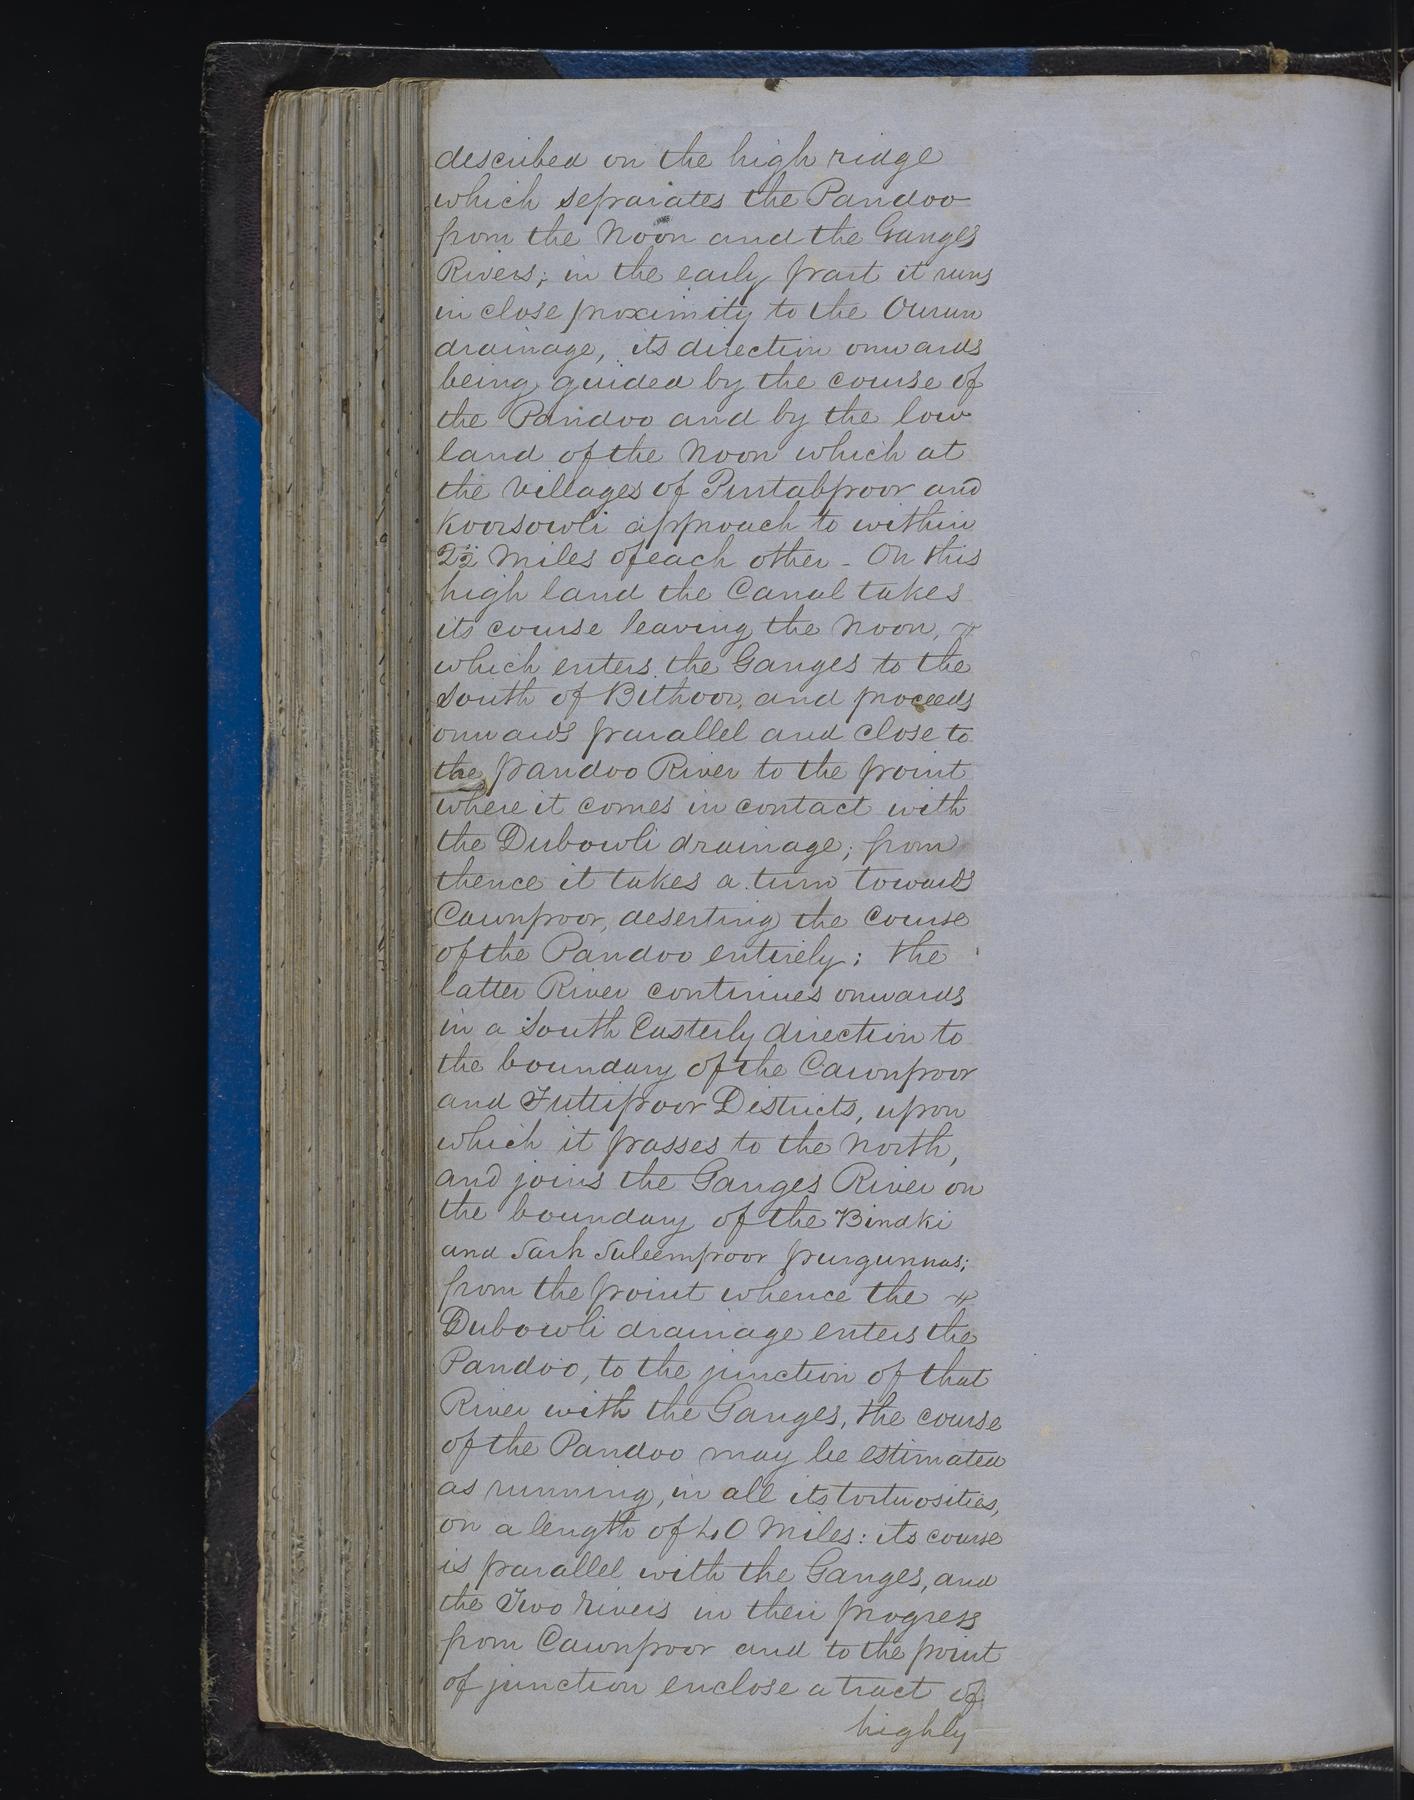 described on the high ridge
which separates the Pandoo
from the Noon and the Ganges
Rivers; in the early part it runs
in close proximity to the Ourun
drainage, its direction onwards
being guided by the course of
the Pandoo and by the low
land of the Noon which at
the Villages of Purtabpoor and
Koorsowli approach to within
2½ Miles of each other - On this
high land the Canal takes
its course leaving the Noon,
which enters the Ganges to the
South of Bithoor, and proceeds
onwards parallel and close to
the pandoo River to the point
where it comes in contact with
the Dubowli drainage; from
thence it takes a turn towards
Cawnpoor, deserting the Course
of the Pandoo entirely; the
latter River continues onwards
in a South Easterly direction to
the boundary of the Cawnpoor
and Futtipoor Districts, upon
which it passes to the North,
and joins the Ganges River on
the boundary of the Bindki
and Sarh Suleempoor purgunnas;
from the point whence the
Dubowli drainage enters the
Pandoo, to the junction of that
River with the Ganges, the course
of the Pandoo may be estimated
as running, in all its tortuosities,
on a length of 40 Miles: its course
is parallel with the Ganges, and
the Two rivers in their progress
from Cawnpoor and to the point
of junction enclose a tract of
highly